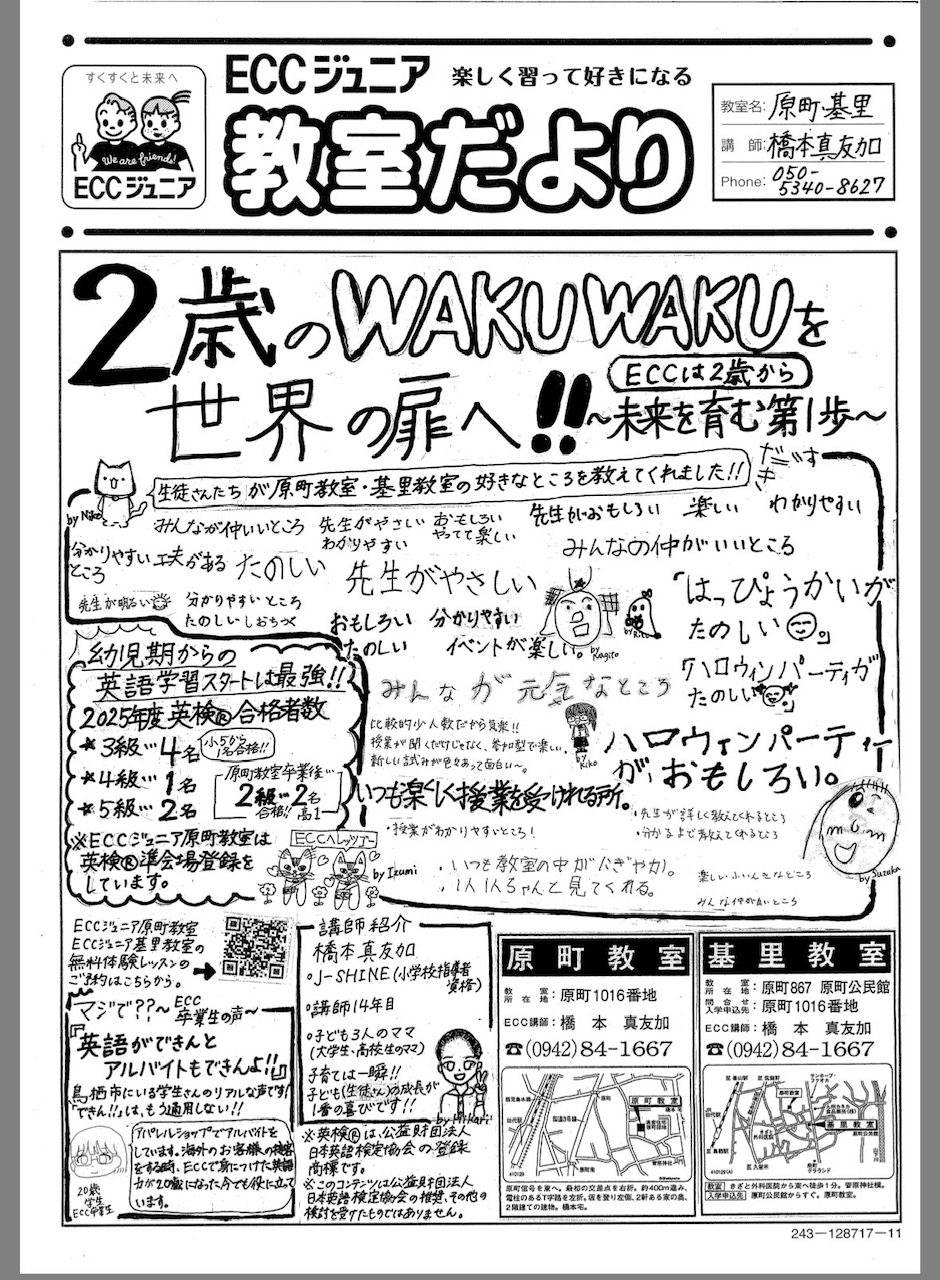 すくすくと未来へ
We are friends!
ECCジュニア
ECCジュニア 楽しく習って好きになる
教室だより
教室名: 原町・基里
講 師: 橋本真友加
Phone: 050-
5340-8627
2歳のWAKUWAKUを
世界の扉へ!!
ECCは2歳から
～未来を育む第1歩～
生徒さんたちが原町教室・基里教室の好きなところを教えてくれました!!
by Niko
みんなが仲いいところ
先生がやさしい
わかりやすい
おもしろい
やってて楽しい
先生がおもしろい
楽しい
わかりやすい
分かりやすい
ところ
工夫がある
たのしい
先生がやさしい
みんなの仲がいいところ
先生が明るい
分かりやすいところ
たのしい
おもしろい 分かりやすい
たのしい イベントが楽しい。
「はっぴょうかいが
たのしい」
by Kagiro
by Riko
みんなが元気なところ
「ハロウィンパーティが
たのしい」
比較的少人数だから気楽!!
授業が聞くだけじゃなく、参加型で楽しい。
新しい試みが色々あって面白い～。
by Kiko
ハロウィンパーティー
が、おもしろい。
いつも楽しく授業を受けれる所。
・授業がわかりやすいところ!
・先生が詳しく教えてくれるところ
・分かるまで教えてくれるところ
・いつも教室の中がにぎやか。
・1人1人ちゃんと見てくれる。
楽しいふいんきなところ
みんな仲が良いところ
by Suzuka
幼児期からの
英語学習スタートは最強!!
2025年度英検®合格者数
★3級…4名
小5から
1名合格!!
★4級…1名
★5級…2名
原町教室卒業後…
2級…2名
合格!! 高1
※ECCジュニア原町教室は
英検®準会場登録を
しています。
ECCへレッツゴー
by Izumi
ECCジュニア原町教室
ECCジュニア基里教室の
無料体験レッスンの
ご予約はこちらから。
マジで??～ECC
卒業生の声～
『英語ができんと
アルバイトもできんよ!!』
鳥栖市にいる学生さんのリアルな声です!
「できん!!」は、もう通用しない!!
アパレルショップでアルバイトを
しています。海外のお客様の接客
をする時、ECCで身につけた英語
力が20歳になった今でも役に立て
います。
20歳
学生
ECC卒業生
講師紹介
橋本真友加
・J-SHINE(小学校指導者
資格)
・講師14年目
・子ども3人のママ
(大学生、高校生のママ)
子育ては一瞬!!
子ども(生徒さん)の成長が
1番の喜びです!!
by Hikari
※英検®は、公益財団法人
日本英語検定協会の登録
商標です。
※このコンテンツは公益財団法人
日本英語検定協会の推奨、その他の
検討を受けたものではありません。
原町教室
教室所在地: 原町1016番地
ECC講師: 橋本 真友加
☎(0942)84-1667
原町教室
410129
原町信号を東へ。最初の交差点を右折。約400m進み、
電柱のあるT字路を左折。坂を登り左側、2軒ある家の奥、
2階建ての建物。橋本宅。
基里教室
教室所在地: 原町867 原町公民館
問合せ・入学申込先: 原町1016番地
ECC講師: 橋本 真友加
☎(0942)84-1667
原町教室
基里教室
410129(A)
教室 きざと外科医院から東へ徒歩1分。菅原神社横。
入学申込先 原町公民館からすぐ。原町教室。
243－128717－11